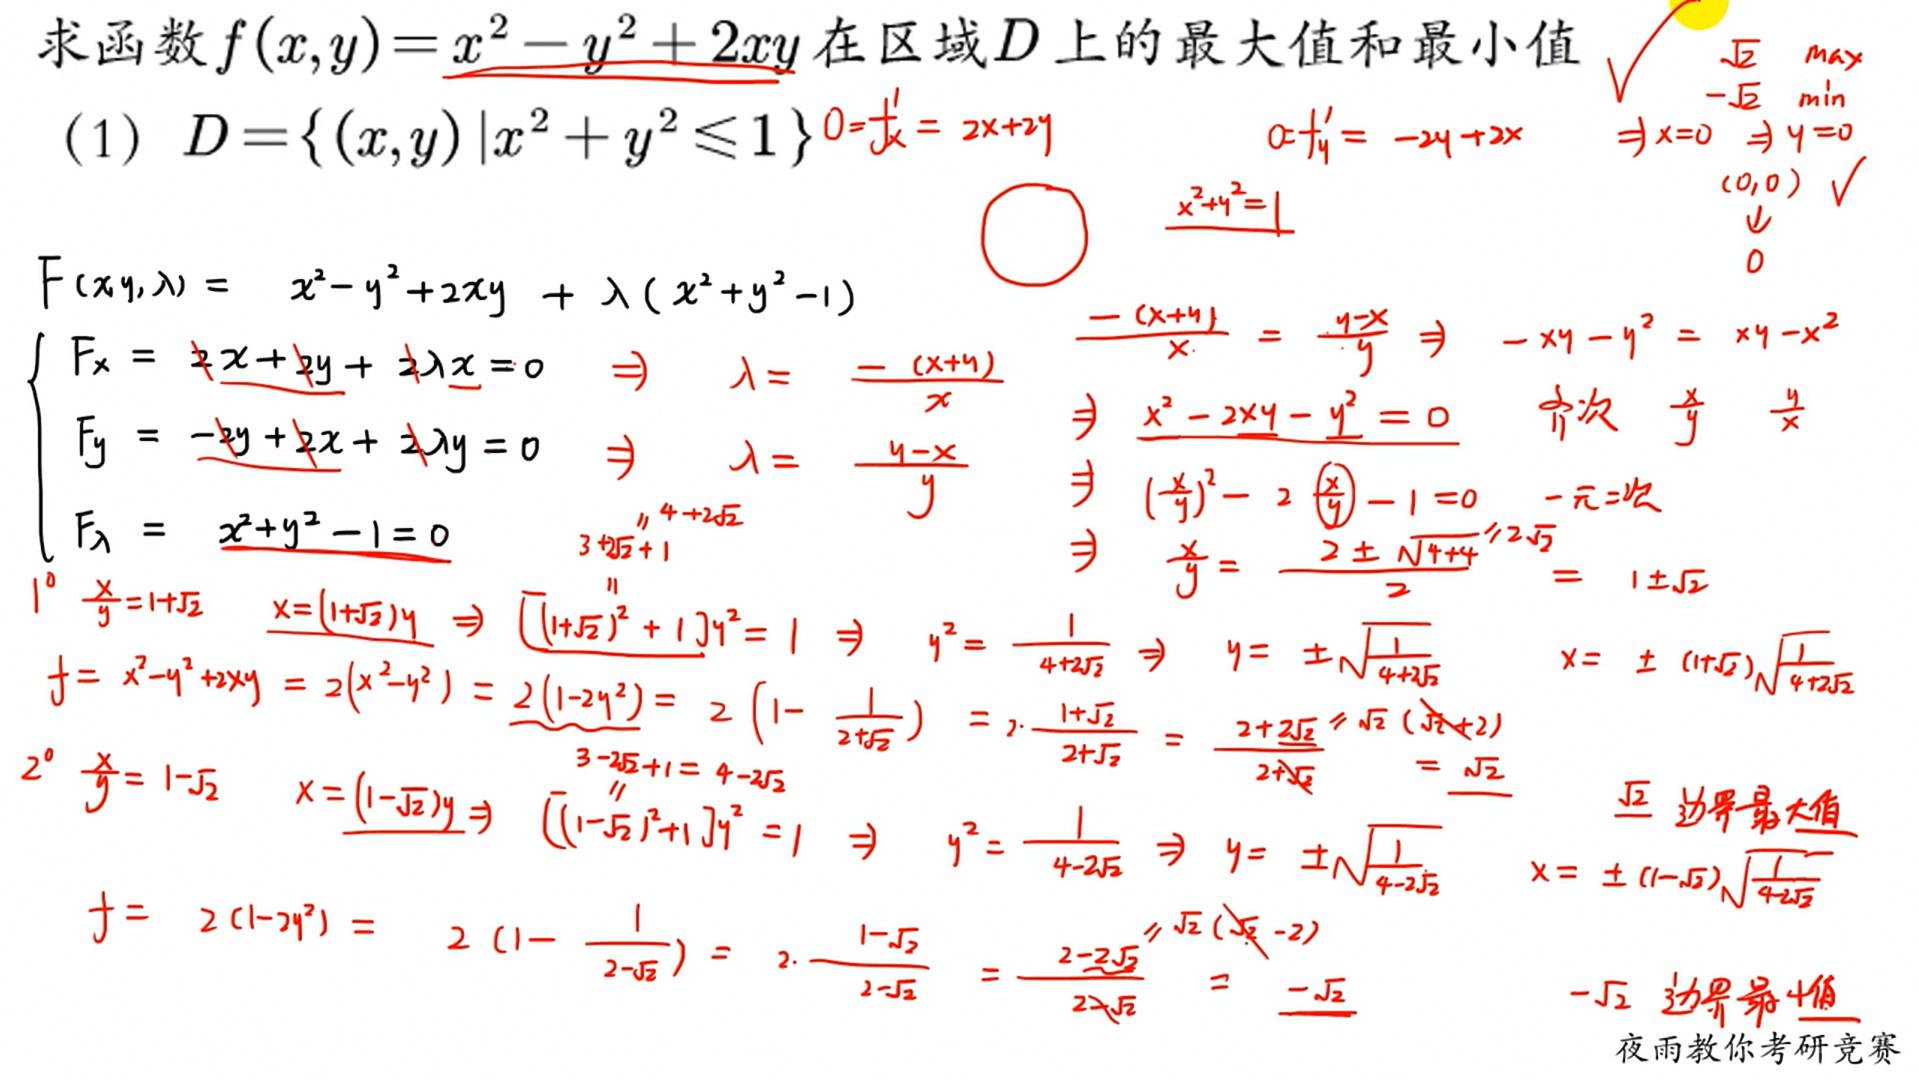 求函数f(x,y)=x²-y²+2xy在区域D上的最大值和最小值
√2 max
-√2 min
(1) D={(x,y)|x²+y²⩽1}
0=f'x = 2x+2y
0=f'y = -2y+2x
⇒x=0 ⇒y=0
(0,0) ✓
↓
0
x²+y²=1
F(x,y,λ) = x²-y²+2xy + λ(x²+y²-1)
Fx = 2x+2y+2λx=0 ⇒ λ= -(x+y)/x
Fy = -2y+2x+2λy=0 ⇒ λ= (y-x)/y
Fλ = x²+y²-1=0
-(x+y)/x = (y-x)/y ⇒ -xy-y² = xy-x²
⇒ x²-2xy-y²=0 齐次 x/y y/x
⇒ (x/y)²-2(x/y)-1=0 一元二次
⇒ x/y = (2±√(4+4))/2 = 1±√2
=2√2
=4+2√2
3+2√2+1
=
1° x/y=1+√2 x=(1+√2)y ⇒ [(1+√2)²+1]y²=1 ⇒ y²= 1/(4+2√2) ⇒ y= ±√(1/(4+2√2)) x= ±(1+√2)√(1/(4+2√2))
f= x²-y²+2xy = 2(x²-y²) = 2(1-2y²)= 2(1- 1/(2+√2)) = 2·(1+√2)/(2+√2) = (2+2√2)/(2+√2) = √2
=√2(√2+2)
√2 边界最大值
3-2√2+1=4-2√2
=
2° x/y=1-√2 x=(1-√2)y⇒ [(1-√2)²+1]y²=1 ⇒ y²= 1/(4-2√2) ⇒ y= ±√(1/(4-2√2)) x= ±(1-√2)√(1/(4-2√2))
f= 2(1-2y²)= 2(1- 1/(2-√2)) = 2·(1-√2)/(2-√2) = (2-2√2)/(2-√2) = -√2
=√2(√2-2)
-√2 边界最小值
夜雨教你考研竞赛